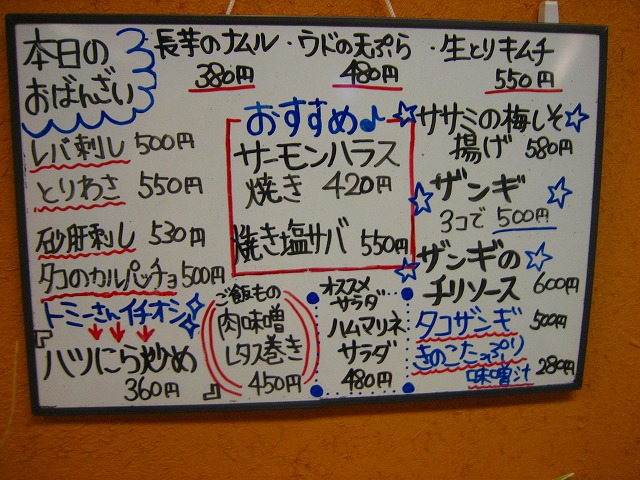 本日の
おばんざい
長芋のナムル・ウドの天ぷら・生とりキムチ
380円 480円 550円
レバ刺し 500円
とりわさ 550円
砂肝刺し 530円
タコのカルパッチョ 500円
トミーさんイチオシ
『ハツにら炒め
360円』
おすすめ♪
サーモンハラス
焼き 420円
焼き塩サバ 550円
ご飯もの
肉味噌
レタス巻き
450円
オススメ
サラダ
ハムマリネ
サラダ
480円
☆ササミの梅しそ☆
揚げ 580円
☆ザンギ☆
3コで 500円
☆ザンギの☆
チリソース 600円
タコザンギ 500円
きのこたっぷり
味噌汁 280円